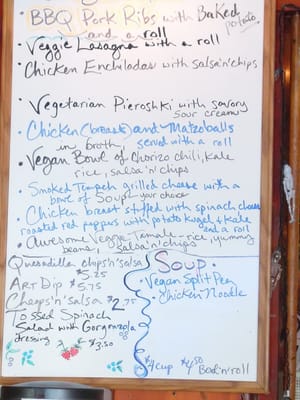 • BBQ Pork Ribs with Baked
potato
and a roll
• Veggie Lasagna with a roll
• Chicken Enchiladas with salsa'n'chips
• Vegetarian Pieroshki with savory
sour cream
• Chicken (breast) and Matzoballs
in broth, served with a roll
• Vegan Bowl of Chorizo chili, kale
rice, salsa'n'chips
• Smoked Tempeh grilled cheese with a
bowl of Soup-your choice
• Chicken breast stuffed with spinach cheese
roasted red peppers with potato kugel & kale
and a roll
• Awesome Veggie Tamale - rice, yummy
beans, salsa'n'chips
Quesadilla chips'n'salsa
$5.25
Art Dip $5.75
Cheeps'n'salsa $2.75
Tossed Spinach
Salad with Gorgonzola
dressing $3.50
Soup
• Vegan Split Pea
• Chicken Noodle
cup $4.50 Bowl'n'roll